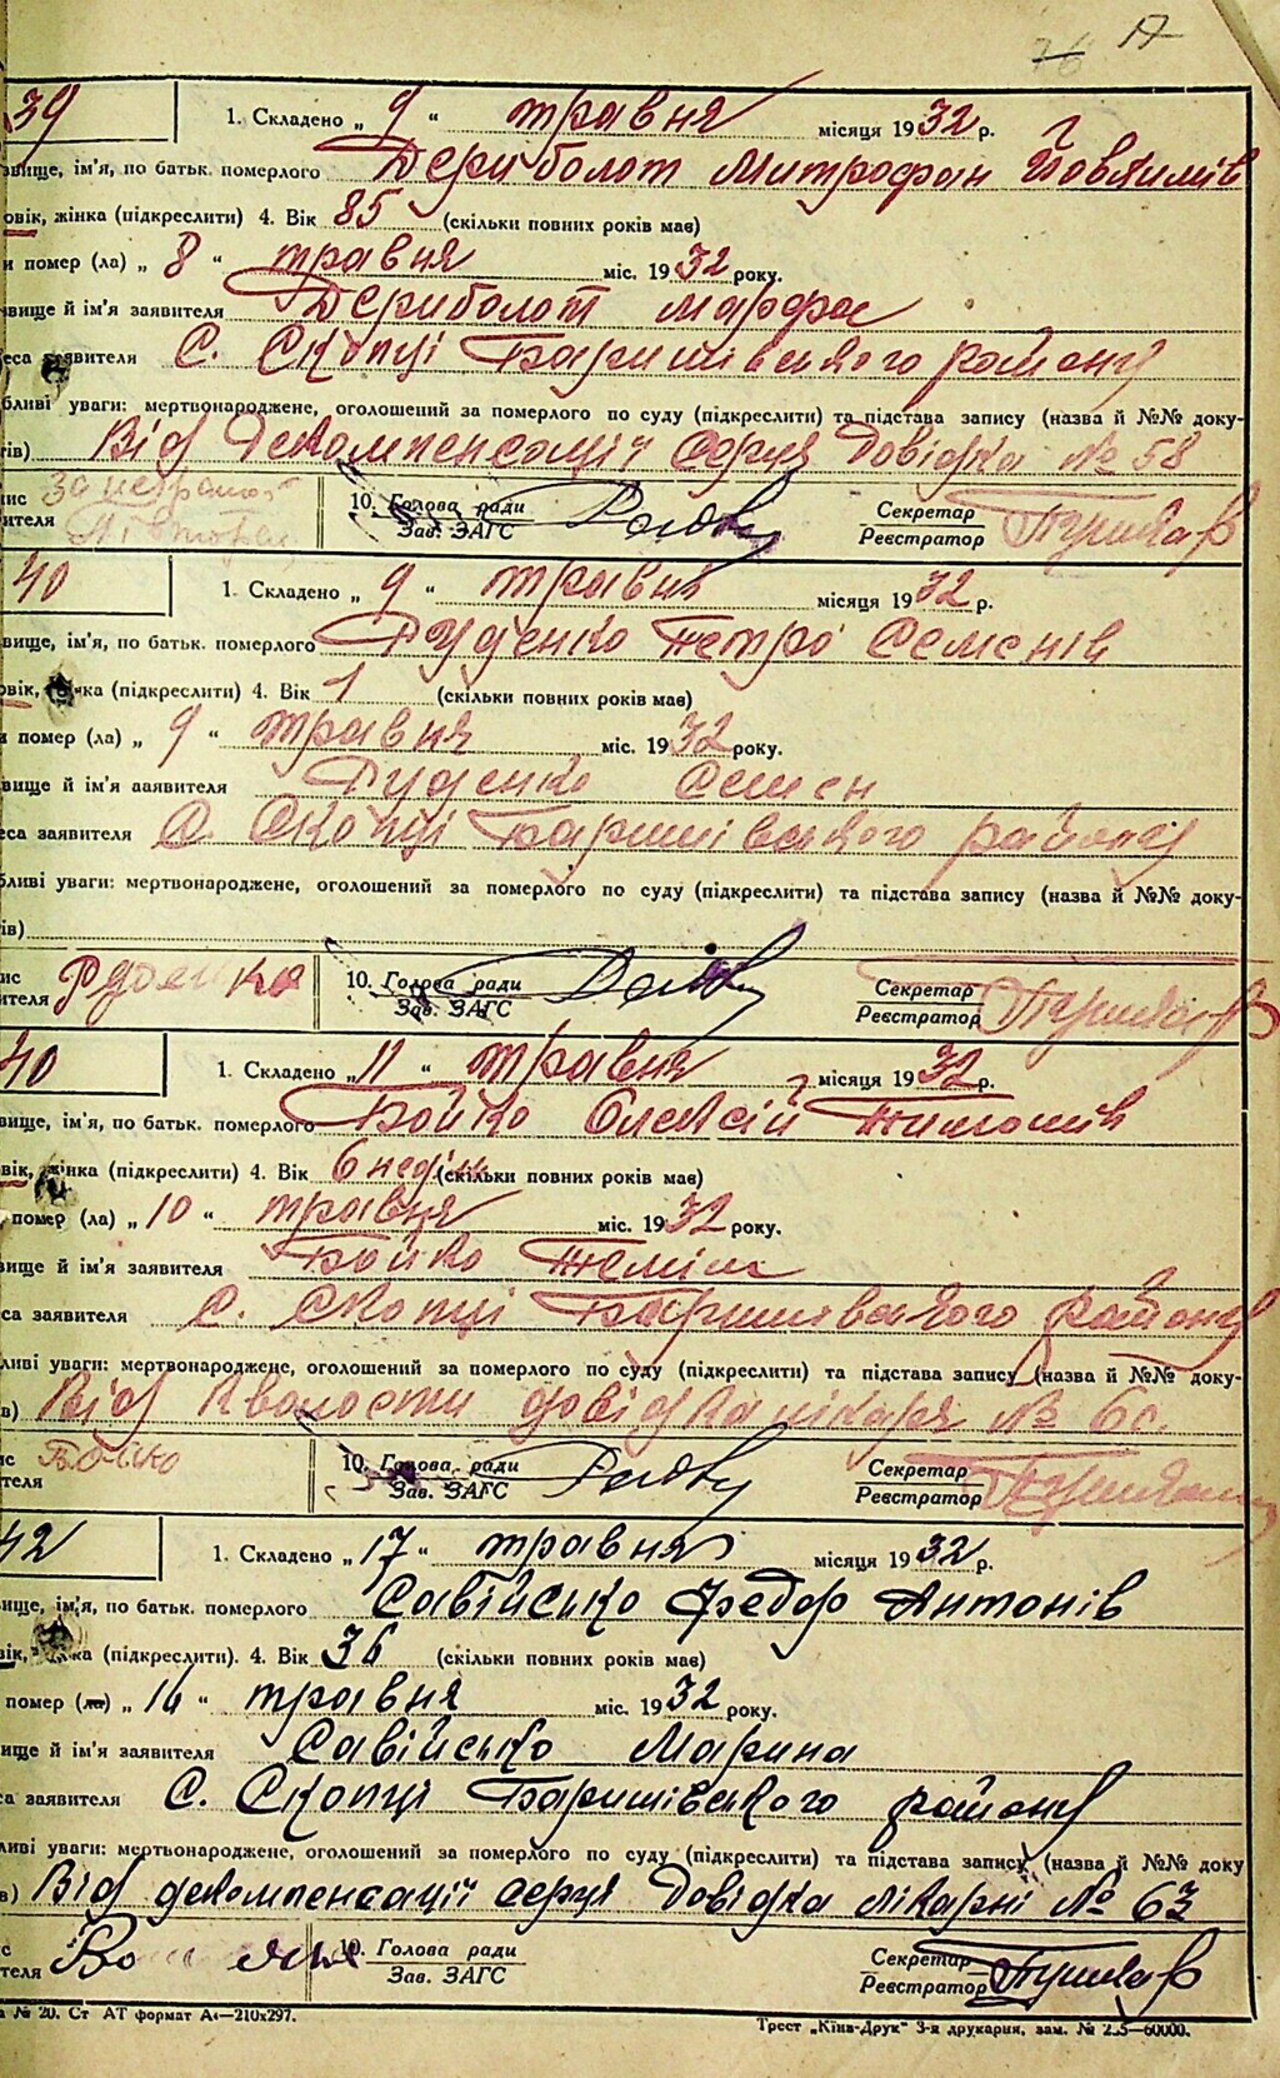 76 17
39 1. Складено „ 9 “ травня місяця 1932 р.
звище, ім'я, по батьк. померлого Дериболот Митрофан Йовхимів
овік, жінка (підкреслити) 4. Вік 85 (скільки повних років має)
и помер (ла) „ 8 “ травня міс. 1932 року.
звище й ім'я заявителя Дериболот Марфа
еса заявителя С. Скопці Баришівського району
бливі уваги: мертвонароджене, оголошений за померлого по суду (підкреслити) та підстава запису (назва й №№ доку-
тів) Від декомпенсації серця Довідка № 58
ис за неграмот
ителя 10. Голова ради Зав. ЗАГС Секретар Реєстратор
40 1. Складено „ 9 “ травня місяця 1932 р.
вище, ім'я, по батьк. померлого Руденко Петро Семенів
овік, жінка (підкреслити) 4. Вік 1 (скільки повних років має)
и помер (ла) „ 9 “ травня міс. 1932 року.
вище й ім'я заявителя Руденко Семен
еса заявителя С. Скопці Баришівського району
бливі уваги: мертвонароджене, оголошений за померлого по суду (підкреслити) та підстава запису (назва й №№ доку-
ів)
ис Руденко
ителя 10. Голова ради Зав. ЗАГС Секретар Реєстратор
40 1. Складено „ 11 “ травня місяця 1932 р.
вище, ім'я, по батьк. померлого Бойко Олексій Тимошів
вік, жінка (підкреслити) 4. Вік 6 неділь (скільки повних років має)
помер (ла) „ 10 “ травня міс. 1932 року.
вище й ім'я заявителя Бойко
са заявителя С. Скопці Баришівського району
ливі уваги: мертвонароджене, оголошений за померлого по суду (підкреслити) та підстава запису (назва й №№ доку-
в) Від кволости довідка лікаря № 60.
ис Бойко
теля 10. Голова ради Зав. ЗАГС Секретар Реєстратор
42 1. Складено „ 17 “ травня місяця 1932 р.
ище, ім'я, по батьк. померлого Савійсько Федор Антонів
вік, жінка (підкреслити). 4. Вік 36 (скільки повних років має)
помер (ла) „ 16 “ травня міс. 1932 року.
ище й ім'я заявителя Савійсько Марина
са заявителя С. Скопці Баришівського району
ливі уваги: мертвонароджене, оголошений за померлого по суду (підкреслити) та підстава запису (назва й №№ доку
в) Від декомпенсації серця Довідка лікарні № 63
с
теля 10. Голова ради Зав. ЗАГС Секретар Реєстратор
а № 20. Ст АТ формат А4—210х297.
Трест „Київ-Друк“ 3-я друкарня, зам. № 235—60000.